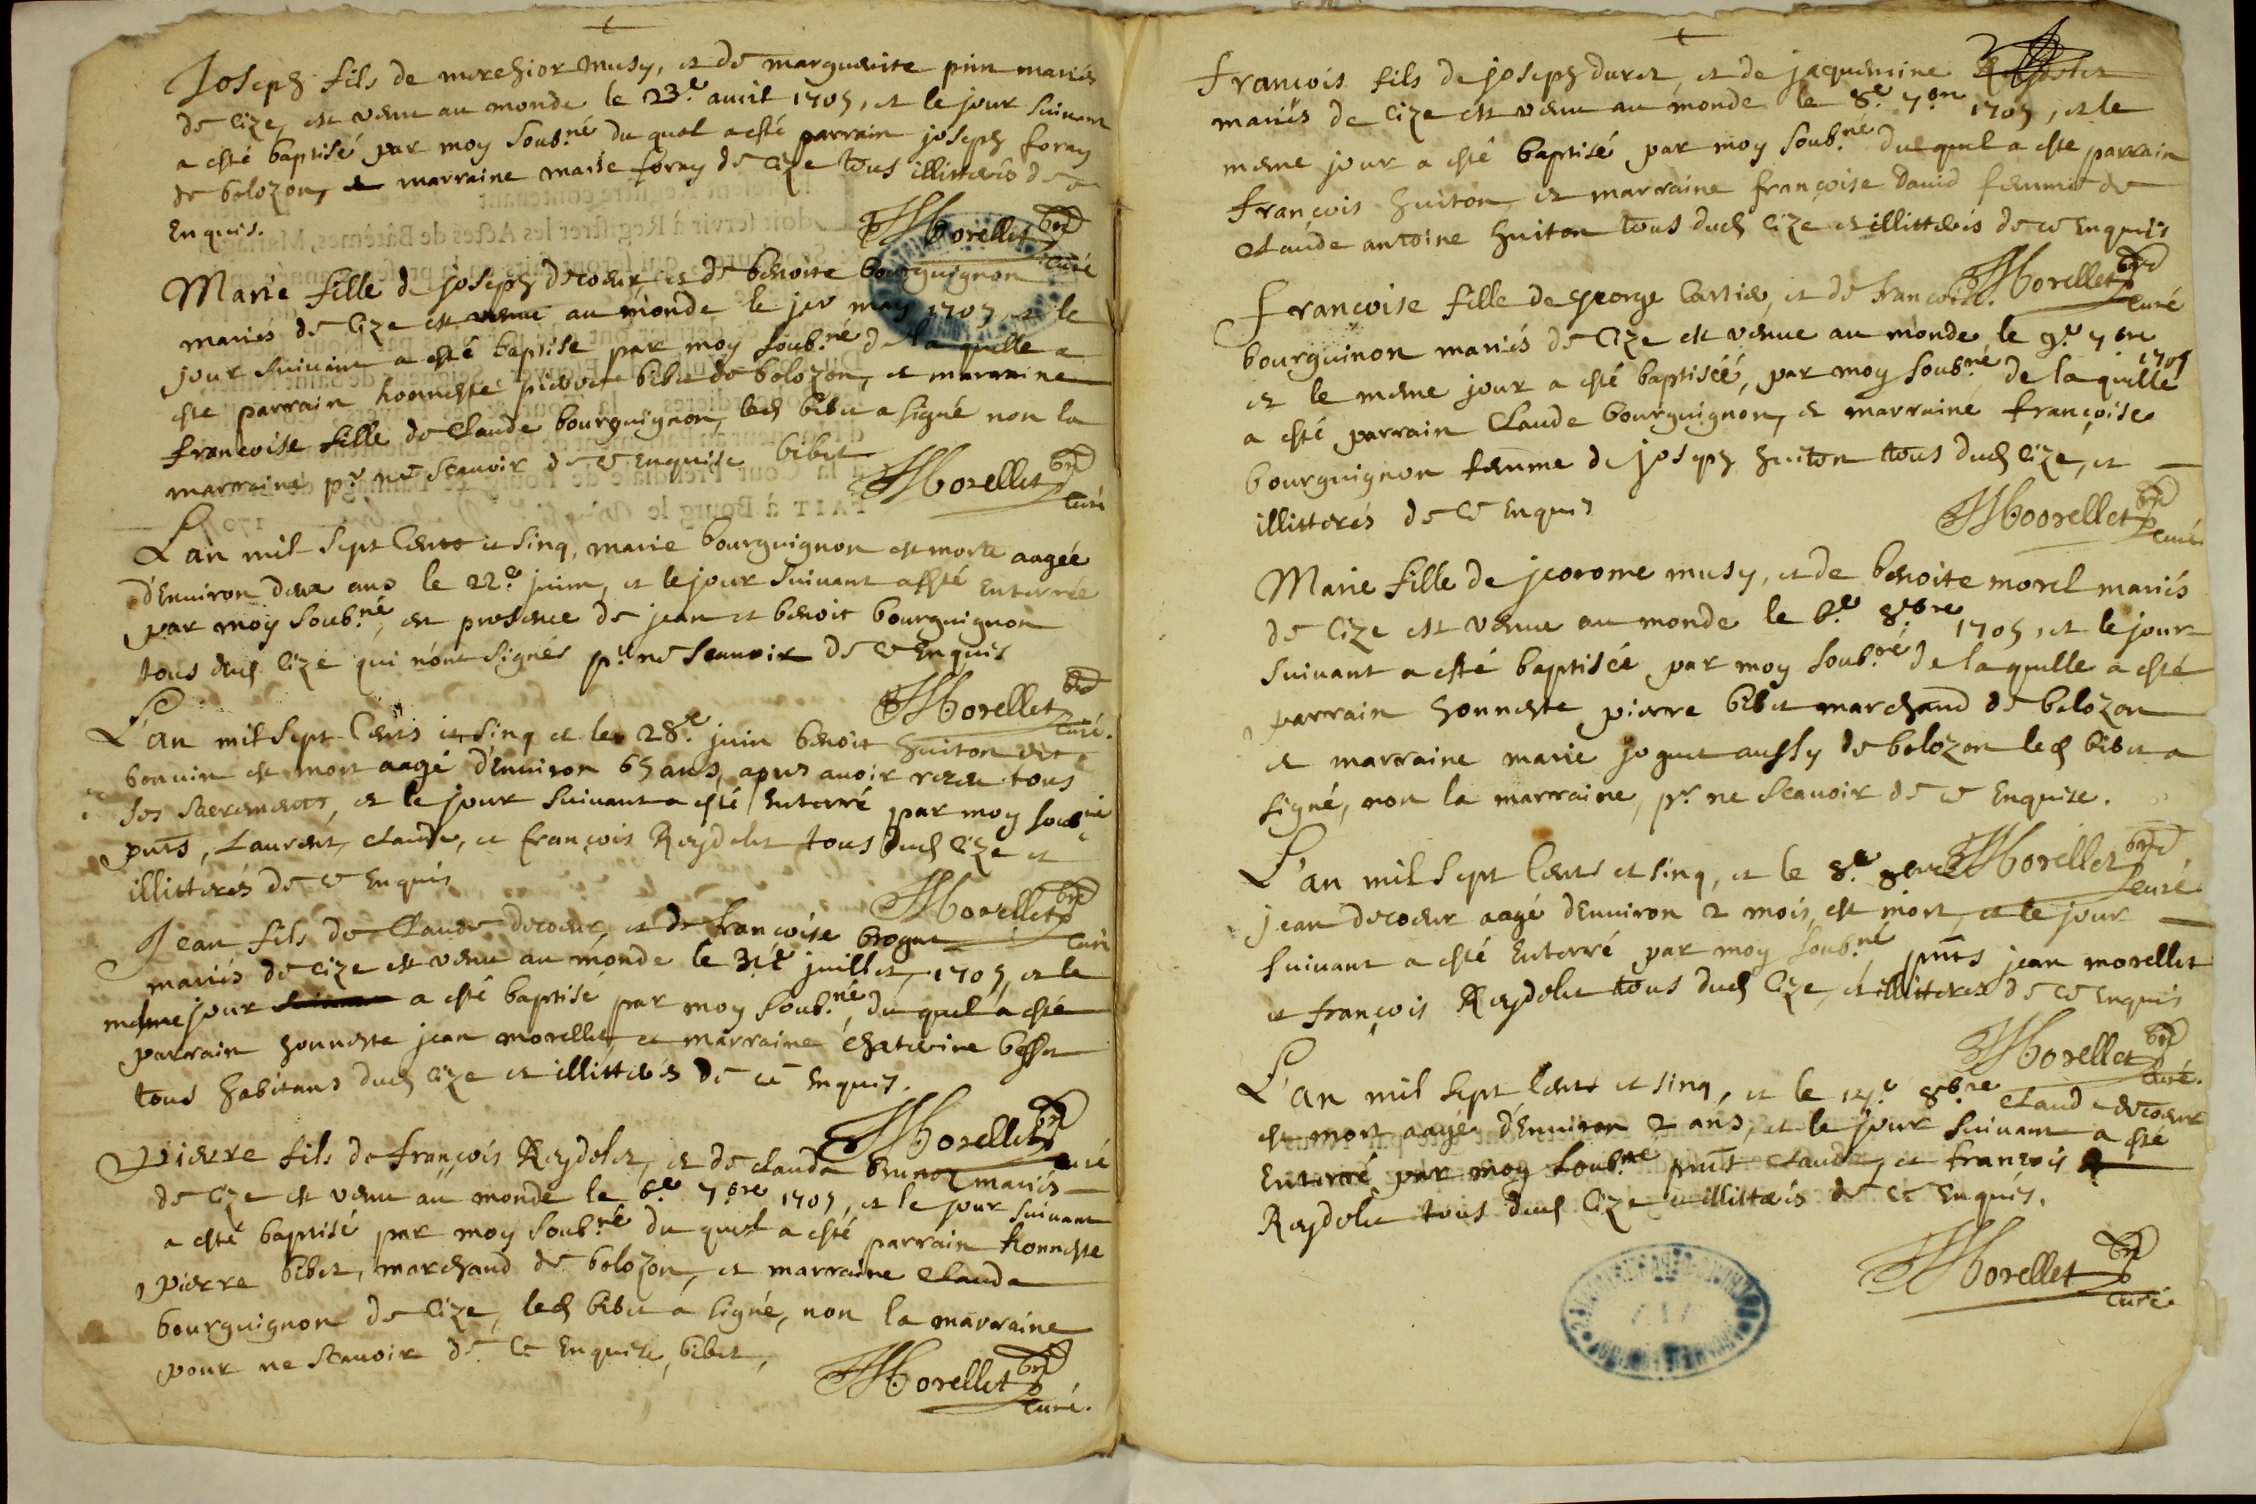 Joseph fils de merchior musy, et de marguerite pin mariés
de Cize, est venu au monde le 23.e auril 1705, et le jour suiuant
a esté baptisé par moy soub.né du quel a esté parrain joseph foray
de bolozon, et marraine marie foray de Cize tous illitterés de ce
Enquis.
Morellet curé
Marie fille de joseph decoeur, et de benoite bourguignon
mariés de Cize est venue au monde le jer may 1705, et le
jour suiuant a esté baptise par moy soub.né de la quelle a
esté parrain honneste pierre bibet de bolozon, et marraine
francoise fille de Claude bourguignon, led bibet a signé non la
marraine p.r ne scauoir de ce Enquise bibet
Morellet curé
L'an mil sept Cents et sinq, marie bourguignon est morte aagée
d'Enuiron deux ans le 22.e juin, et le jour suiuant a esté Enterrée
par moy soub.né, en presence de jean et benoit bourguignon
tous dud Cize qui n'ont signés p.r ne scauoir de ce Enquis
Morellet curé.
L'an mil sept Cents et sinq et le 28.e juin benoit huiton dit
bonuin est mort aagé d'Enuiron 65 ans, apres auoir receu tous
ses sacrements, et le jour suiuant a esté Enterré par moy soub.né
pnts, Laurent, Claude, et françois Reydelet tous dud Cize et
illitterés de ce Enquis
Morellet curé
Jean fils de Claude decoeur, et de francoise brogue
mariés de Cize est venu au monde le 31.e juillet, 1705, et le
meme jour a esté baptisé par moy soub.né, du quel a esté
parrain honneste jean morellet, et marraine Chaterine besson
tous habitans dud Cize et illitterés de ce Enquis.
Morellet curé
Pierre fils de françois Reydelet, et de Clauda brunoz mariés
de Cize est venu au monde le 6.e 7.bre 1705, et le jour suiuant
a esté baptisé par moy soub.né du quel a esté parrain honneste
pierre bibet, marchand de bolozon, et marraine Clauda
bourguignon de Cize, led bibet a signé, non la marraine
pour ne scauoir de ce Enquise, bibet,
Morellet curé.
francois fils de joseph duret, et de jaquemine Reydelet
mariés de Cize est venu au monde le 8.e 7.bre 1705, et le
meme jour a esté baptisé par moy soub.né du quel a esté parrain
françois huiton, et marraine françoise Dauid femme de
Claude antoine huiton tous dud Cize et illitterés de ce Enquis
Morellet curé
francoise fille de george Cartier, et de francoise
bourguinon mariés de Cize est venue au monde le 9.e 7.bre 1705
et le meme jour a esté baptisée, par moy soub.né de la quelle
a esté parrain Claude bourguignon, et marraine françoise
bourguignon femme de joseph huiton tous dud Cize, et
illitterés de ce Enquis
Morellet curé
Marie fille de jeorome musy, et de benoite morel mariés
de Cize est venue au monde le 6.e 8.bre 1705, et le jour
suiuant a esté baptisée par moy soub.né de la quelle a esté
parrain honneste pierre bibet marchand de bolozon
et marraine marie joguet aussy de bolozon led bibet a
signé, non la marraine, p.r ne scauoir de ce Enquise.
Morellet curé
L'an mil sept Cents et sinq, et le 8.e 8bre
jean decoeur aagé d'Enuiron 2 mois est mort, et le jour
suiuant a esté Enterré par moy soub.né pnts jean morellet
et françois Reydelet tous dud Cize, et illitteres de ce Enquis
Morellet curé.
L'an mil sept Cents et sinq, et le 8.bre Claude decoeur
est mort aagé d'Enuiron 2 ans, et le jour suiuant a esté
Enterré par moy soub.né pnts Claude, et françois
Reydelet tous dud Cize et illitterés de ce Enquis.
Morellet curé